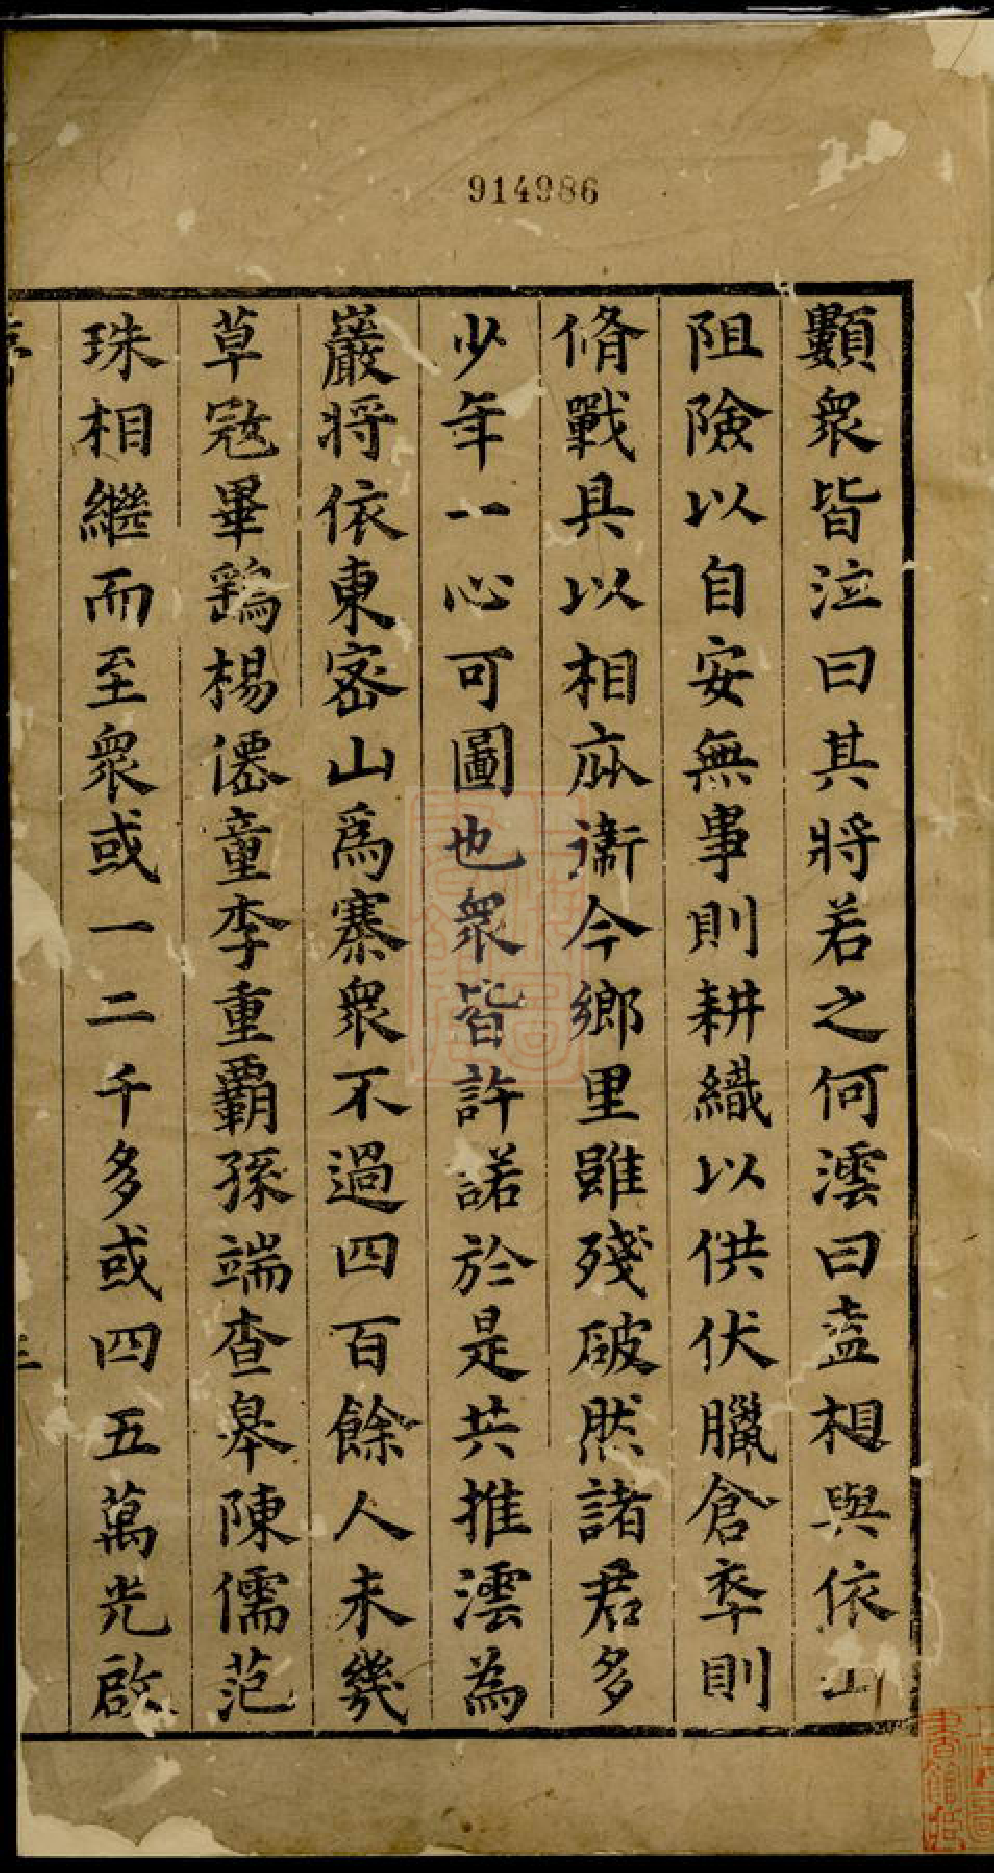 914986
顥衆皆泣曰其將若之何澐曰盍相與依山
阻險以自安無事則耕織以供伏臘倉卒則
脩戰具以相㡽衞今鄉里雖殘破然諸君多
少年一心可圖也衆皆許諾於是共推澐為
巖將依東密山爲寨衆不過四百餘人未幾
草寇畢鷂楊僊童李重霸孫端查皋陳儒范
珠相繼而至衆或一二千多或四五萬光啟
三